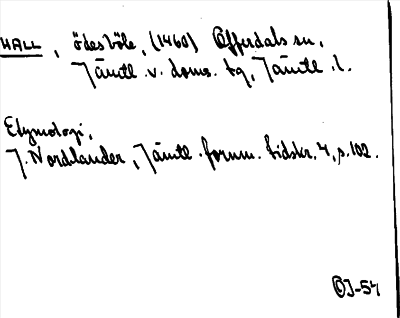 HALL, ödesböle, (1460) Offerdals sn,
Jämtl. v. doms. tg, Jämtl. l.
Etymologi,
J. Nordlander, Jämtl. fornm. tidskr. 4, s. 102.
OJ-54